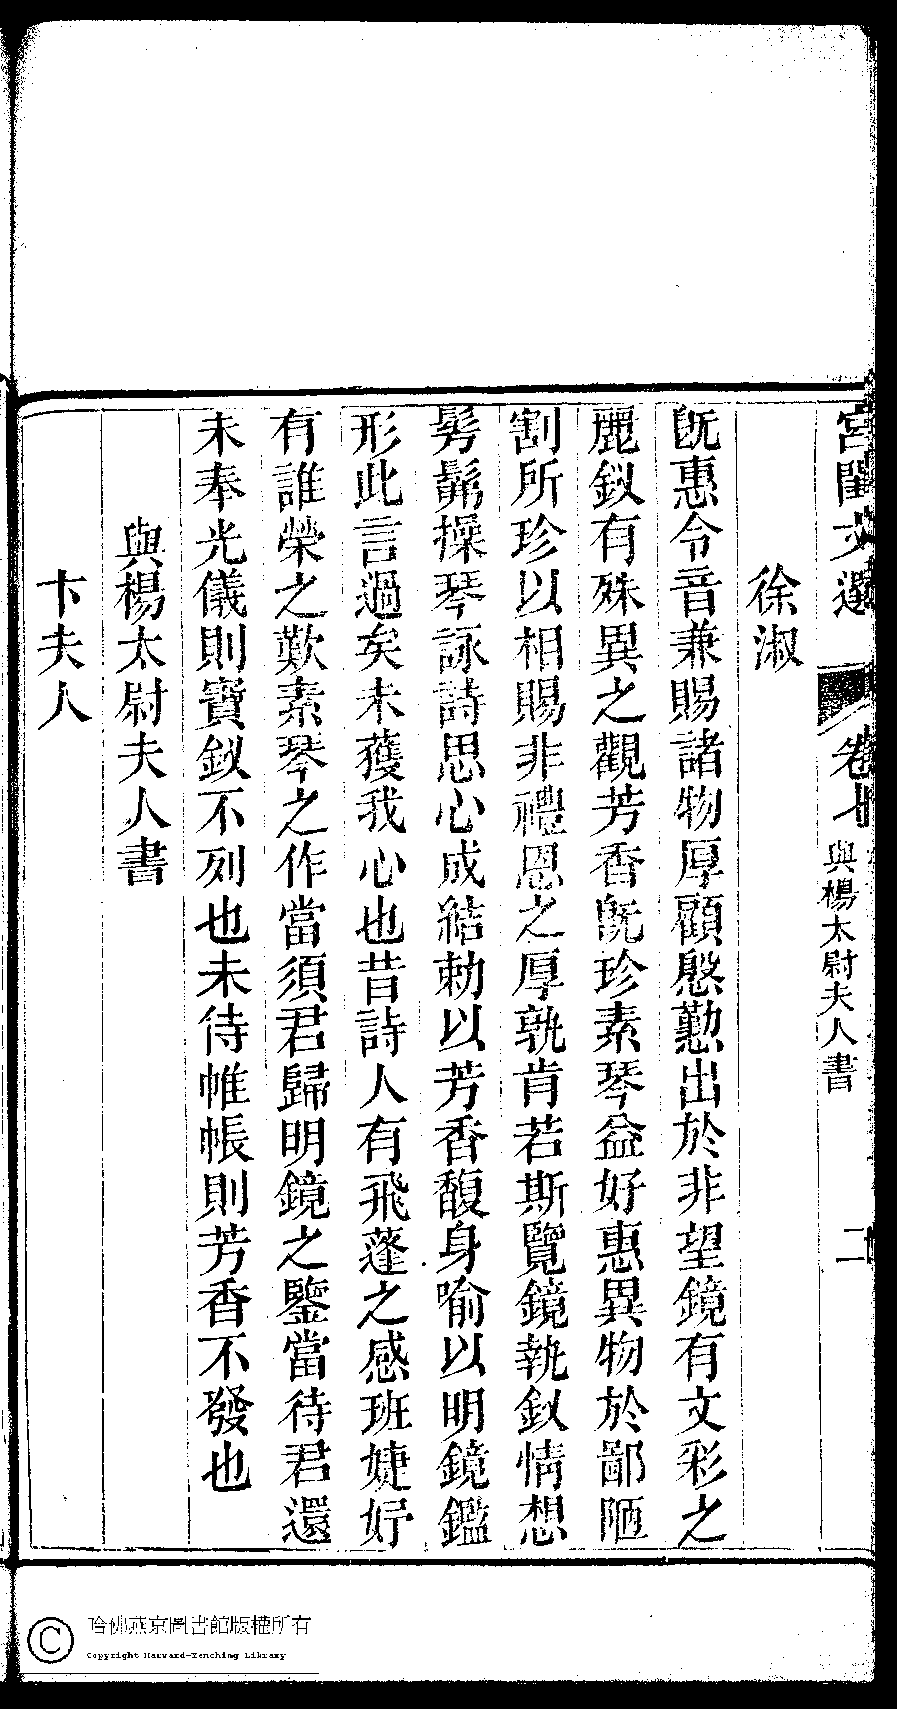 宮閨文選
卷十
與楊太尉夫人書
二
徐淑
旣惠令音兼賜諸物厚顧慇懃出於非望鏡有文彩之
麗釵有殊異之觀芳香旣珍素琴益好惠異物於鄙陋
割所珍以相賜非禮恩之厚孰肯若斯覽鏡執釵情想
髣髴操琴詠詩思心成結勅以芳香馥身喻以明鏡鑑
形此言過矣未獲我心也昔詩人有飛蓬之感班婕妤
有誰榮之歎素琴之作當須君歸明鏡之鑒當待君還
未奉光儀則寶釵不列也未待帷帳則芳香不發也
與楊太尉夫人書
卞夫人
哈佛燕京圖書館版權所有
Copyright Harvard-Yenching Library